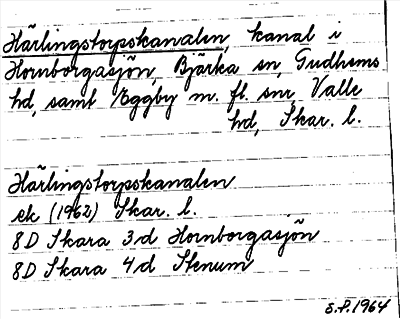 Härlingstorpskanalen, kanal i
Hornborgasjön, Bjärka sn, Gudhems
hd, samt Eggby m. fl. snr, Valle
hd, Skar. l.
Härlingstorpskanalen
ek (1962) Skar. l.
8D Skara 3d Hornborgasjön
8D Skara 4d Stenum
S.P. 1964